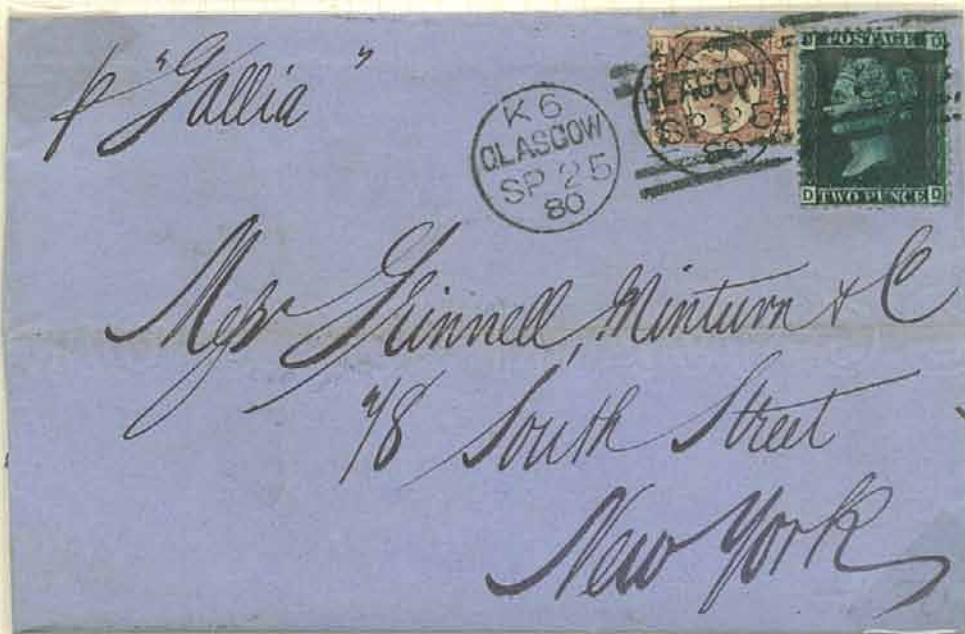 p "Gallia"
K 6
GLASGOW
SP 25
80
GLASGOW
80
D POSTAGE D
D TWO PENCE D
Messr Grinnell, Minturn & C
78 South Street
New York